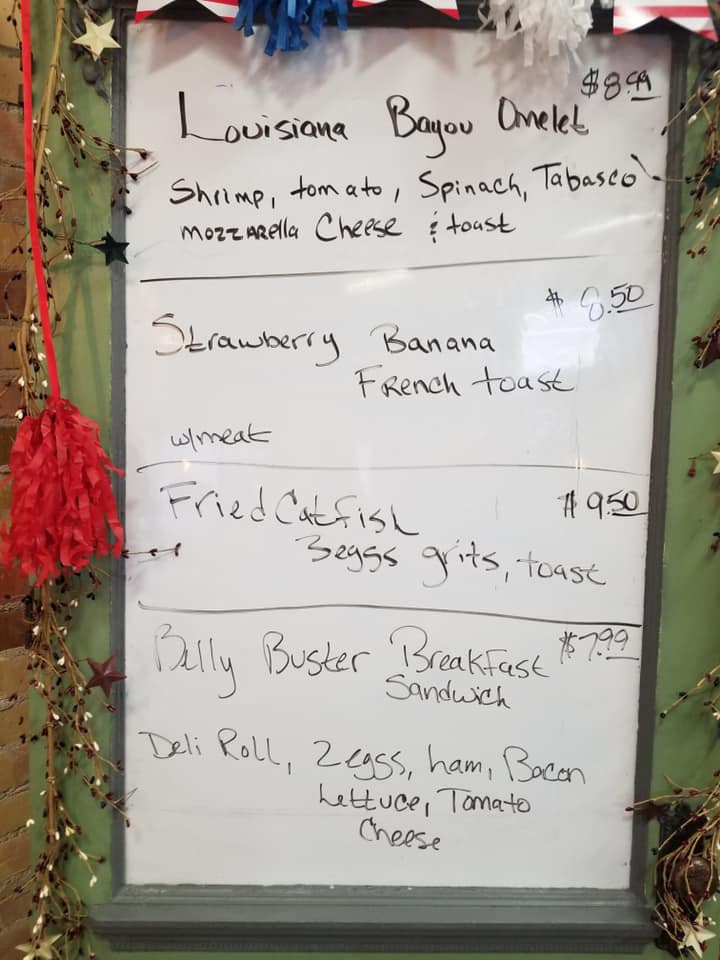 $8.99
Louisiana Bayou Omelet
Shrimp, tomato, Spinach, Tabasco
mozzarella Cheese & toast
$8.50
Strawberry Banana
French toast
w/meat
Fried Catfish $9.50
3eggs grits, toast
Belly Buster Breakfast $7.99
Sandwich
Deli Roll, 2eggs, ham, Bacon
Lettuce, Tomato
Cheese